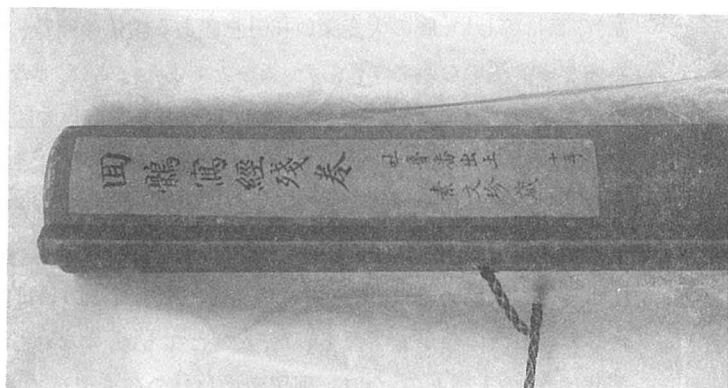 回鶻寫經殘卷
吐魯番出土
素文珍藏